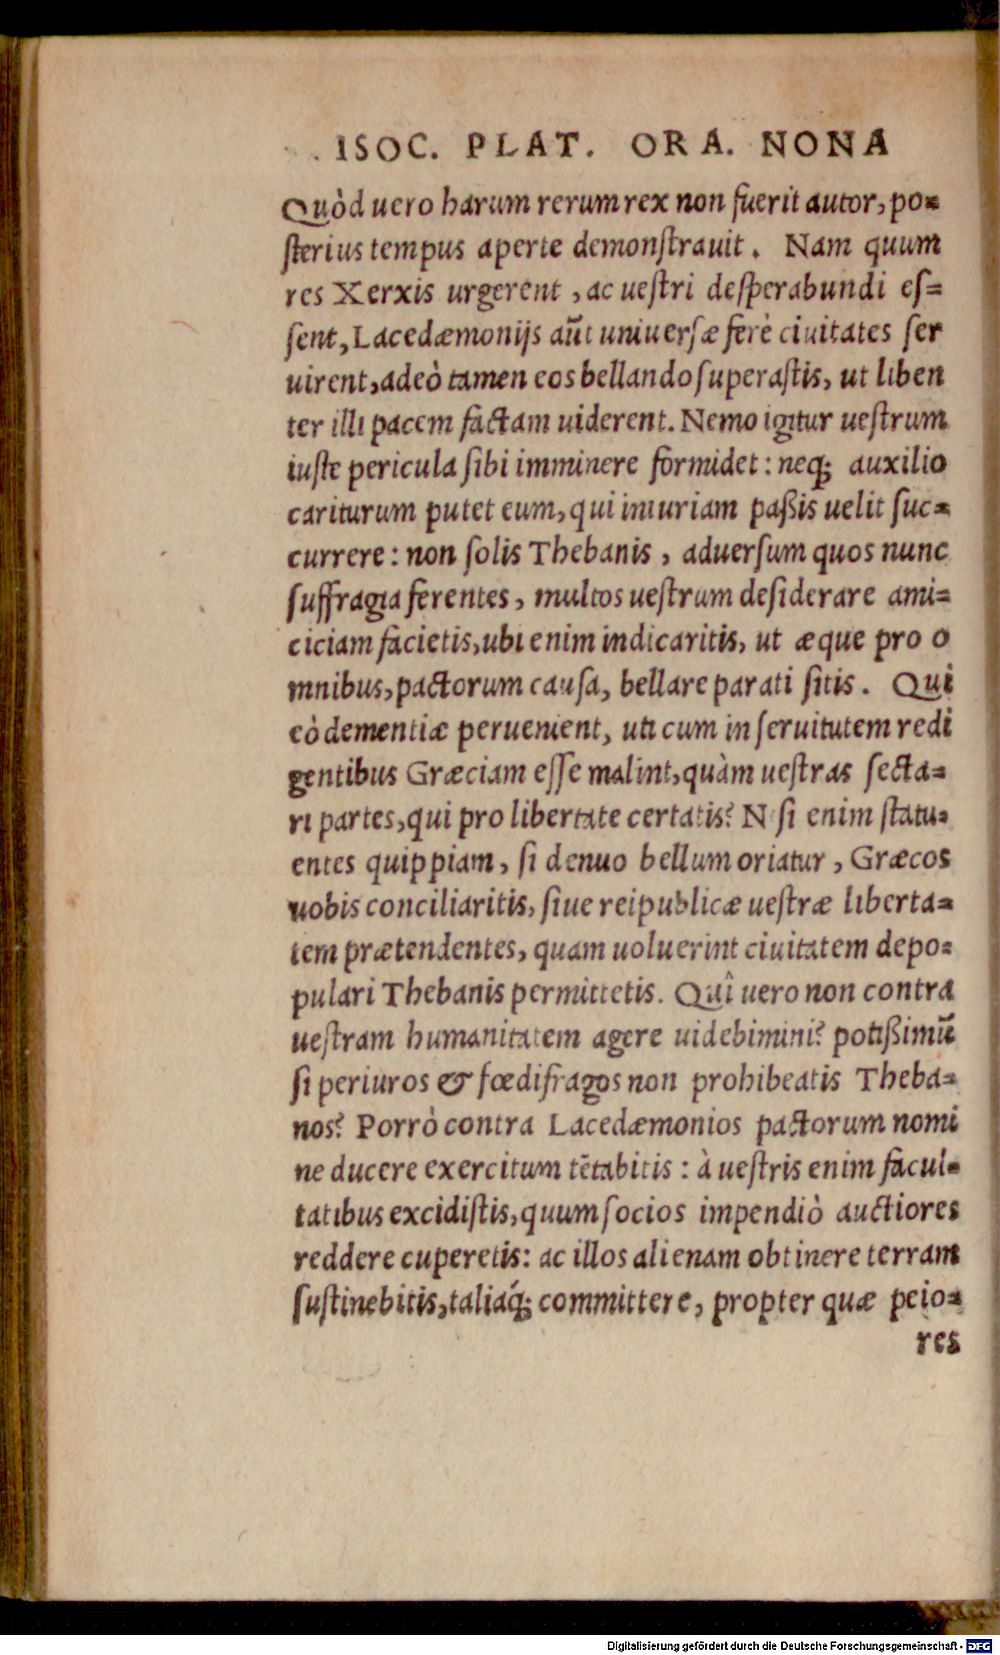 ISOC. PLAT. ORA. NONA
Quòd uero harum rerum rex non fuerit autor, po=
ſterius tempus aperte demonſtrauit. Nam quum
res Xerxis urgerent, ac ueſtri deſperabundi eſ=
ſent, Lacedæmonijs aūt uniuerſæ ferè ciuitates ſer
uirent, adeò tamen eos bellando ſuperaſtis, ut liben
ter illi pacem factam uiderent. Nemo igitur ueſtrum
iuſte pericula ſibi imminere formidet: neq; auxilio
cariturum putet eum, qui iniuriam paßis uelit ſuc=
currere: non ſolis Thebanis, aduerſum quos nunc
ſuffragia ferentes, multos ueſtrum deſiderare ami=
ciciam facietis, ubi enim indicaritis, ut æque pro o
mnibus, pactorum cauſa, bellare parati ſitis. Qui
eò dementiæ peruenient, uti cum in ſeruitutem redi
gentibus Græciam eſſe malint, quàm ueſtras ſecta=
ri partes, qui pro libertate certatis? N ſi enim ſtatu=
entes quippiam, ſi denuo bellum oriatur, Græcos
uobis conciliaritis, ſiue reipublicæ ueſtræ liberta=
tem prætendentes, quam uoluerint ciuitatem depo=
pulari Thebanis permittetis. Quî uero non contra
ueſtram humanitatem agere uidebimini? potißimū
ſi periuros & fœdifragos non prohibeatis Theba=
nos? Porrò contra Lacedæmonios pactorum nomi
ne ducere exercitum tētabitis: à ueſtris enim facul=
tatibus excidiſtis, quum ſocios impendiò auctiores
reddere cuperetis: ac illos alienam obtinere terram
ſuſtinebitis, taliaq́; committere, propter quæ peio=
res
Digitalisierung gefördert durch die Deutsche Forschungsgemeinschaft - DFG